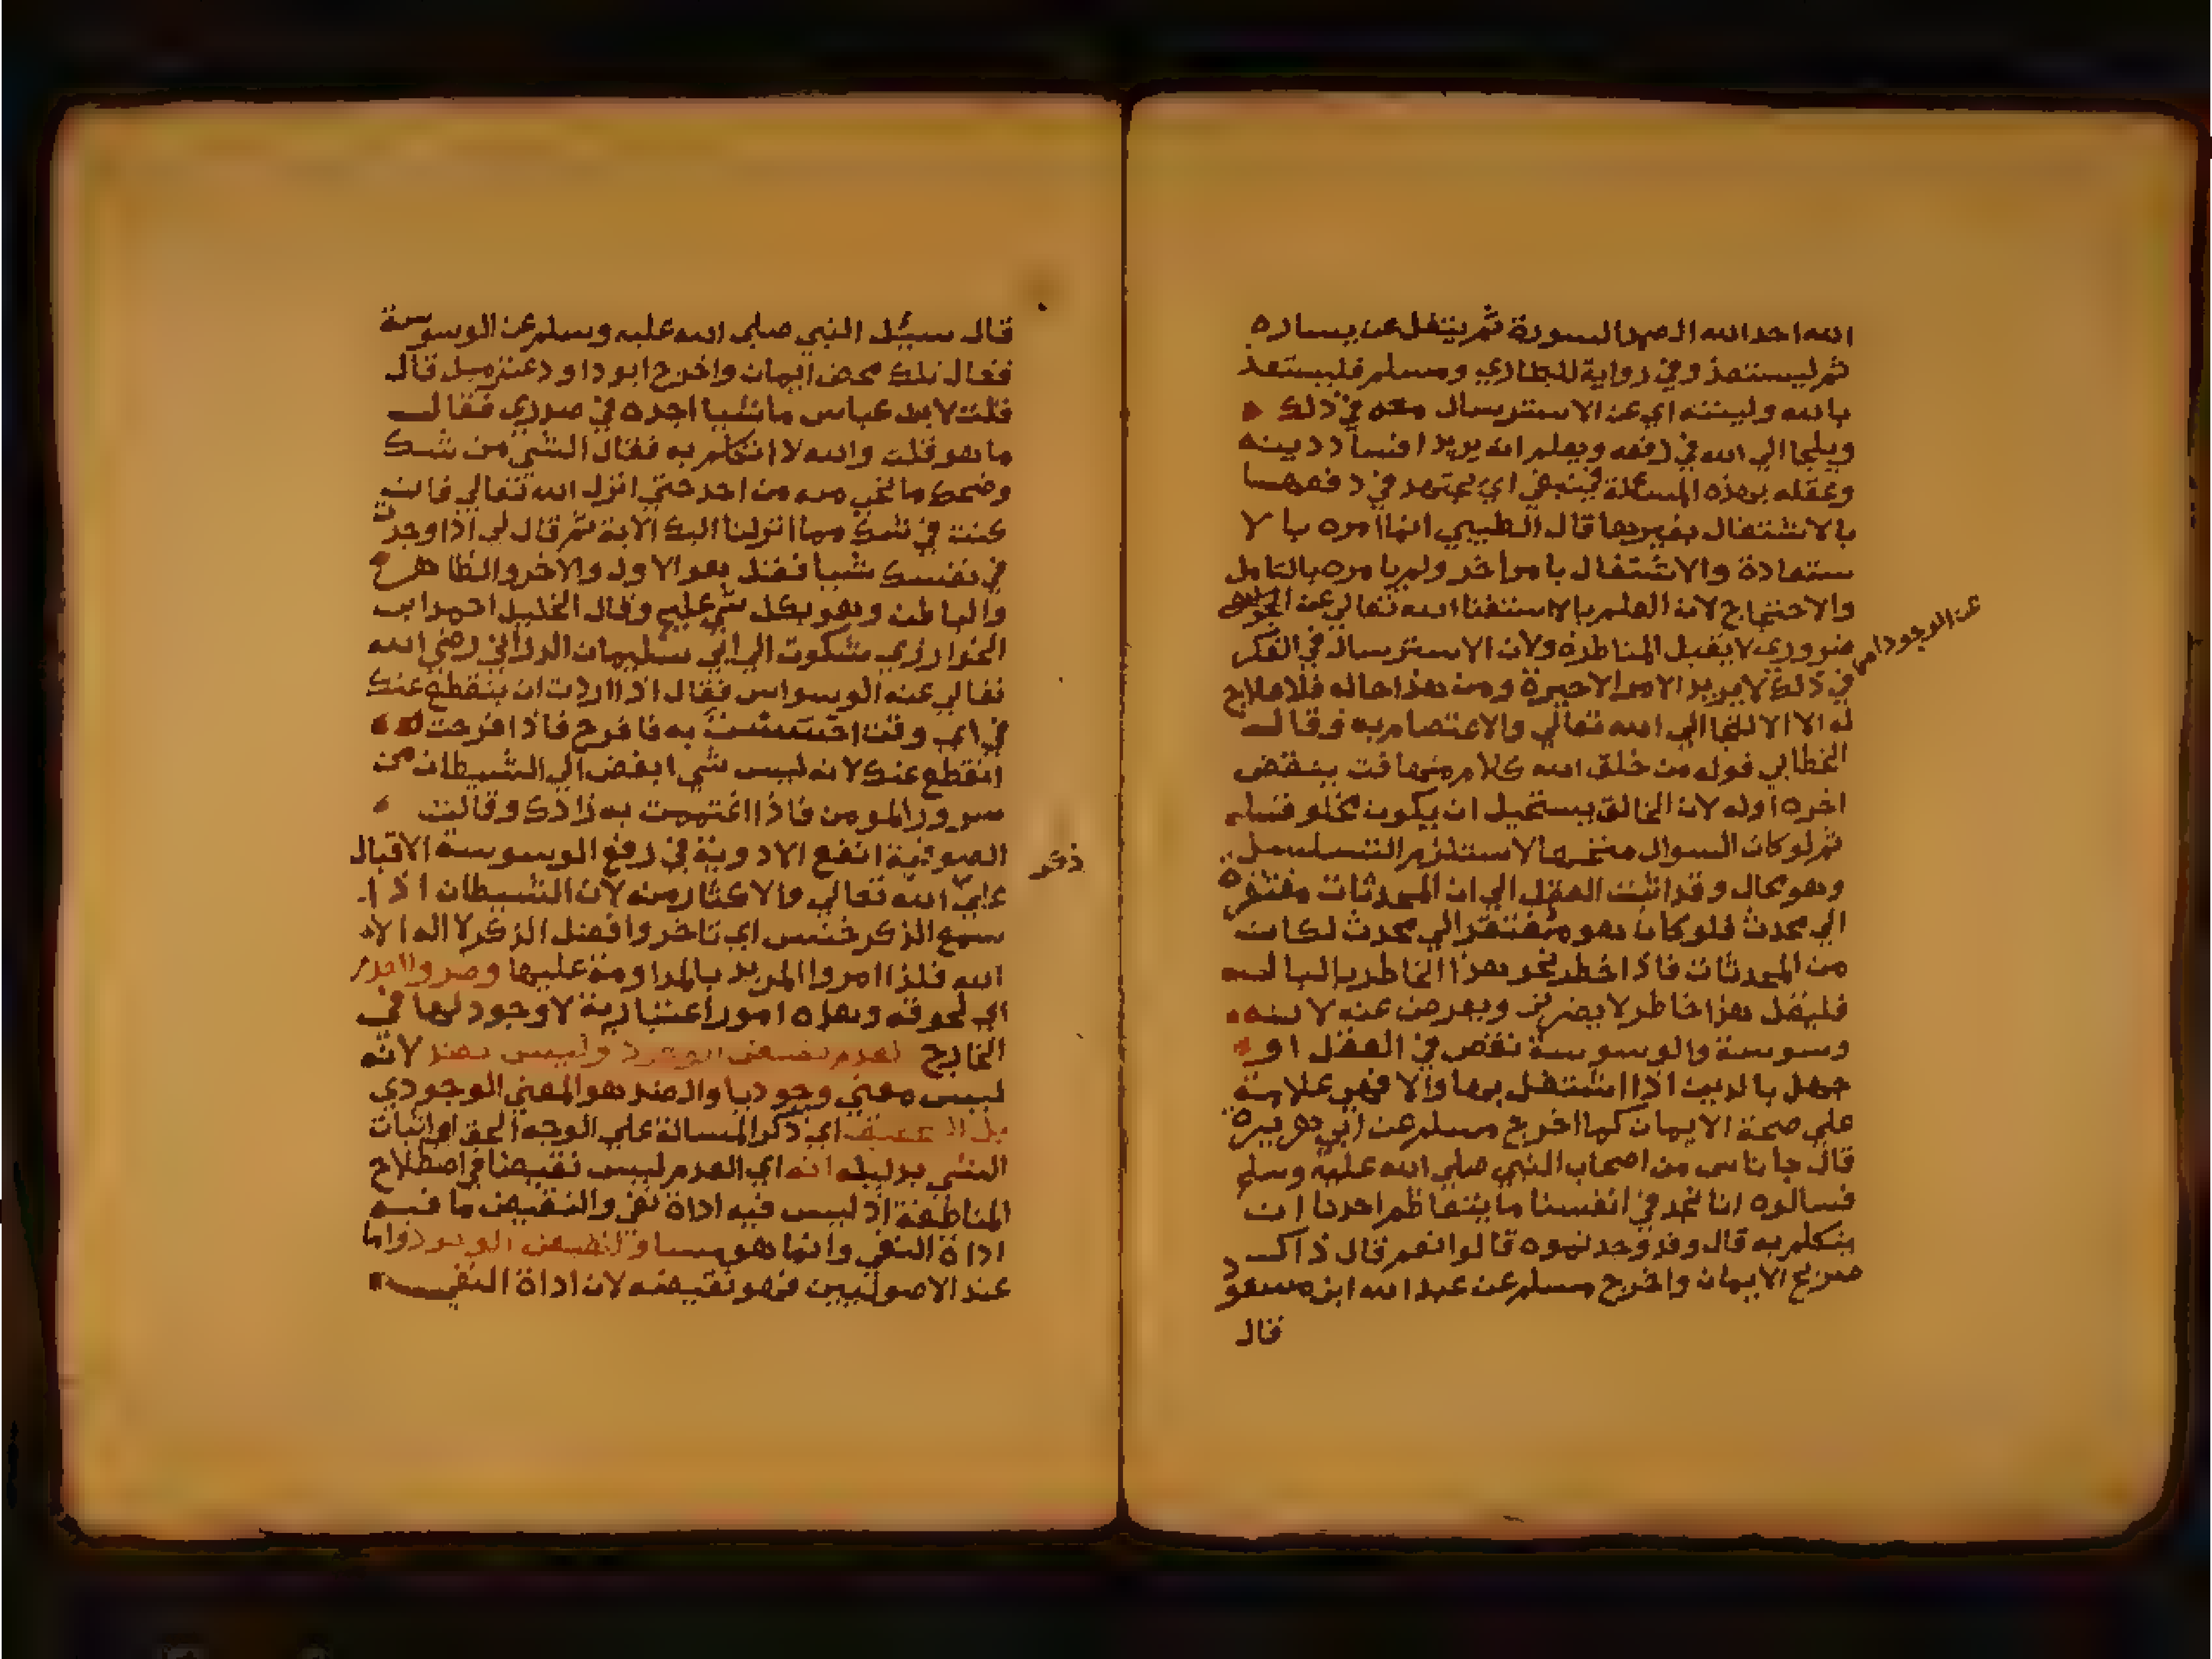 الله احد الله الصمد السورة ثم يتفل عن يساره
ثم ليستعذ وفي رواية للبخاري ومسلم فليستعذ
بالله ولينته اي عن الاسترسال معه في ذلك
ويلجا الي الله في دفعه ويعلم انه يريد افساد دينه
وعقله بهذه المسئلة فينبغي اي يجتهد في دفعها
بالاشتغال بغيرها قال الطيبي انما امره بالا
ستعاذة والاشتغال بامر اخر ولم يامره بالتامل
والاحتجاج لان العلم بالاستغنا الله تعالي عن
عن الموجد امر
ضروري لا يقبل المناظرة ولان الاسترسال في الفكر
في ذلك لا يريد الامر الاحيرة ومن هذا حاله فلا علاج
له الا الالتجا الي الله تعالي والاعتصام به وقال
الخطابي قوله من خلق الله كلام متهافت ينقض
اخره اوله لان الخالق يستحيل ان يكون مخلوقا
ثم لو كان السوال متجها لاستلزم التسلسل
وهو محال وقد اثبت العقل الي ان المحدثات مفتقرة
الي محدث فلو كان هو مفتقر الي محدث لكان
من المحدثات فاذا خطر نحو هذا الخاطر بالبال
فليقل هذا خاطر لا يضرني ويعرض عنه لانه
وسوسة والوسوسة نقص في العقل او
جهل بالدين اذا اشتغل بها والا فهي علامة
علي صحة الايمان كما اخرج مسلم عن ابي هريرة
قال جا ناس من اصحاب النبي صلي الله عليه وسلم
فسالوه انا نجد في انفسنا ما يتعاظم احدنا ان
يتكلم به قال وقد وجدتموه قالوا نعم قال ذاك
صريح الايمان واخرج مسلم عن عبد الله ابن مسعود
قال
قال سيئل النبي صلي الله عليه وسلم عن الوسوسة
فقال تلك محض ايمان واخرج ابو داود عن زميل قال
قلت لابن عباس ما شيا اجده في صدري فقال
ما هو قلت والله لا اتكلم به فقال الشي من شك
وضحك ما نجي منه من احد حتي انزل الله تعالي فان
كنت في شك مما انزلنا اليك الاية ثم قال لي اذا وجدت
في نفسك شيا فقل هو الاول والاخر والظاهر
والباطن وهو بكل شي عليم وقال الخليل احمد ابن
الخوارزي شكوت الي ابي سليمان الداراني رضي الله
تعالي عنه الوسواس فقال اذا اردت ان ينقطع عنك
في اي وقت احسست به فافرح فاذا فرحت به
انقطع عنك لانه ليس شي ابغض الي الشيطان من
سرور المومن فاذا اغتممت به زادك وقالت
الصوفية انفع الادوية في دفع الوسوسة الاقبال
ذكر
علي الله تعالي والاكثار منه لان الشيطان اذا
سمع الذكر خنس اي تاخر وافضل الذكر لا اله الا
الله فلذا امروا المريد بالمداومة عليها وضد والعدم
اي لحوقه وهذه امور اعتبارية لا وجود لها في
الخارج لعدم نقيض الوجود وليس بضد لانه
ليس معني وجوديا والضد هو المعني الوجودي
بل التحقيق اي ذكر المسالة علي الوجه الحق او اثبات
الشي بدليله انه اي العدم ليس نقيضا في اصطلاح
المناطقة اذ ليس فيه اداة نفي والنقيض ما فيه
اداة النفي وانما هو مساو لنقيض الوجود واما
عند الاصوليين فهو نقيضه لان اداة النفي